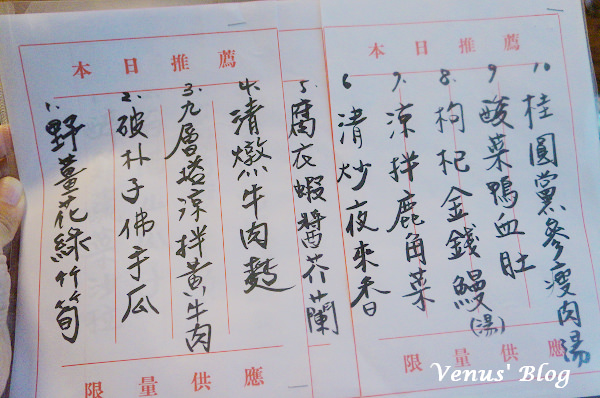 本日推薦
1. 野薑花綠竹筍
2. 破朴子佛手瓜
3. 九層塔涼拌黃牛肉
4. 清燉牛肉麵
5. 腐衣蝦醬芥蘭
限量供應
本日推薦
6 清炒夜來香
7. 涼拌鹿角菜
8. 枸杞金錢鰻(湯)
9 酸菜鴨血肚
10 桂圓黨參瘦肉湯
限量供應
Venus' Blog